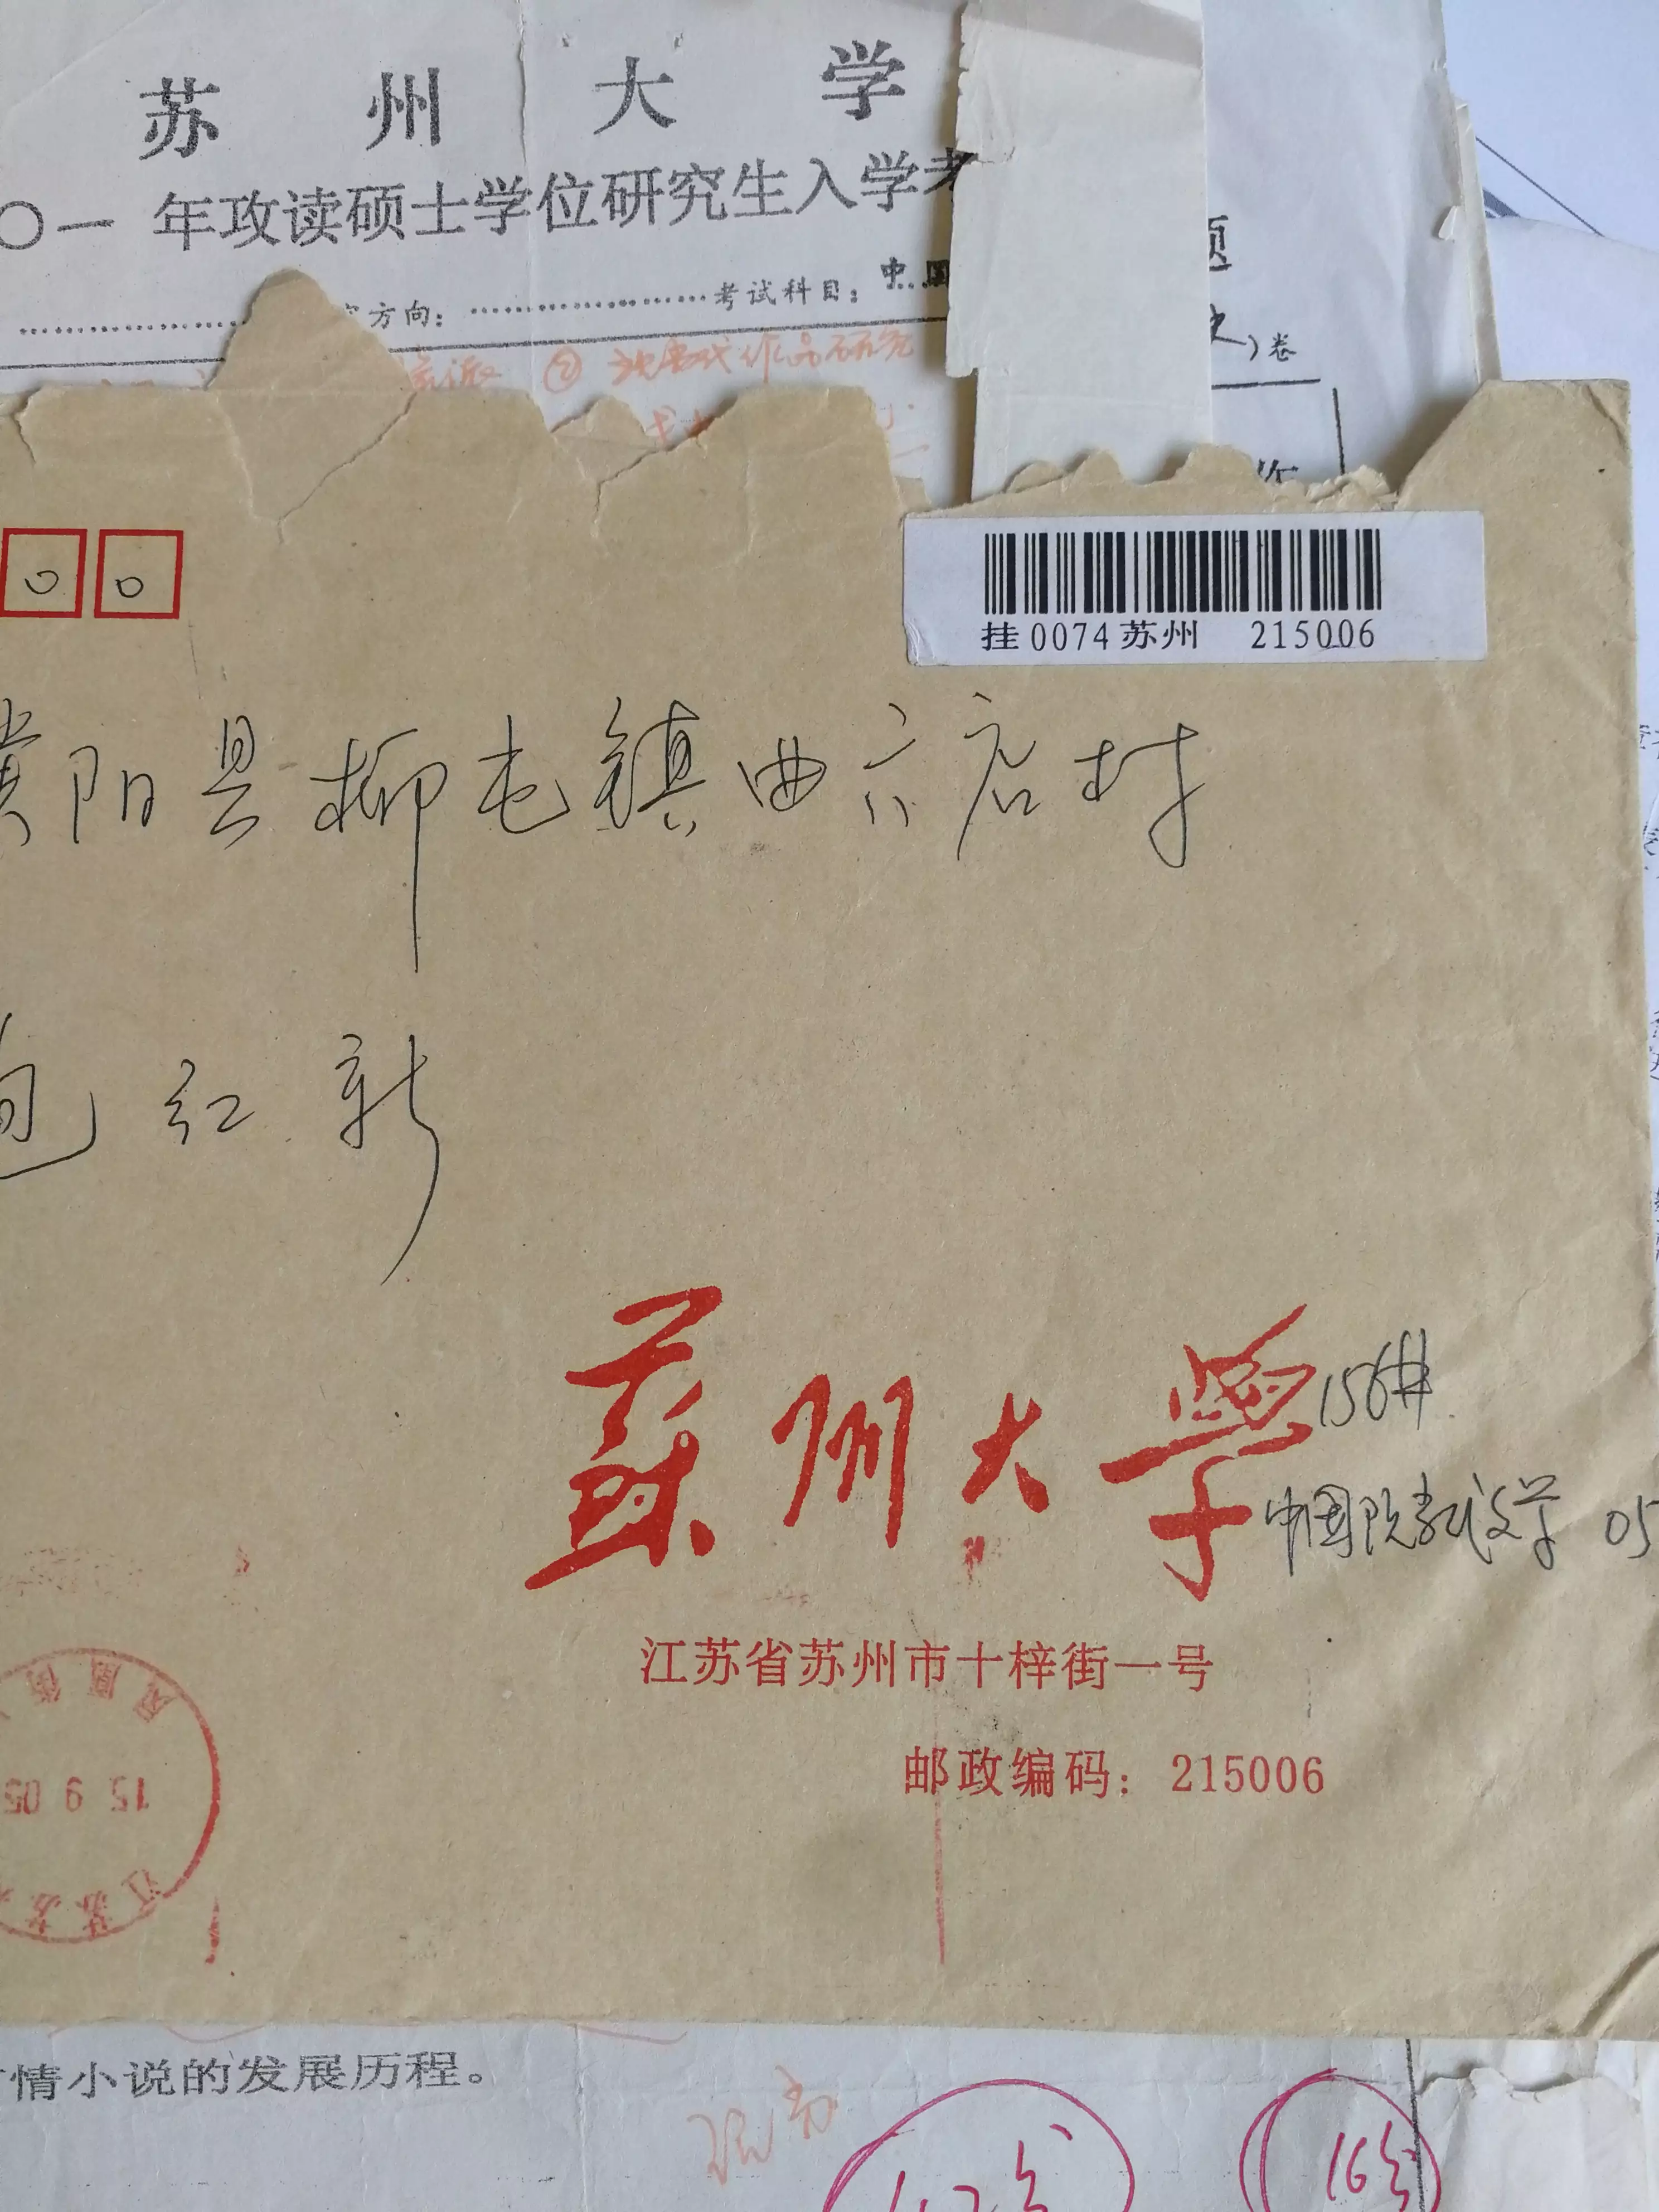 苏州大学
〇一年攻读硕士学位研究生入学考
题
方向：考试科目：中国
）卷
② 作品研究
00
挂0074苏州 215006
濮阳县柳屯镇曲六店村
包红新
蘇州大學
156#
中国现当代文学 05
江苏省苏州市十梓街一号
邮政编码：215006
凤凰街
15 9 05
江苏苏
情小说的发展历程。
16分